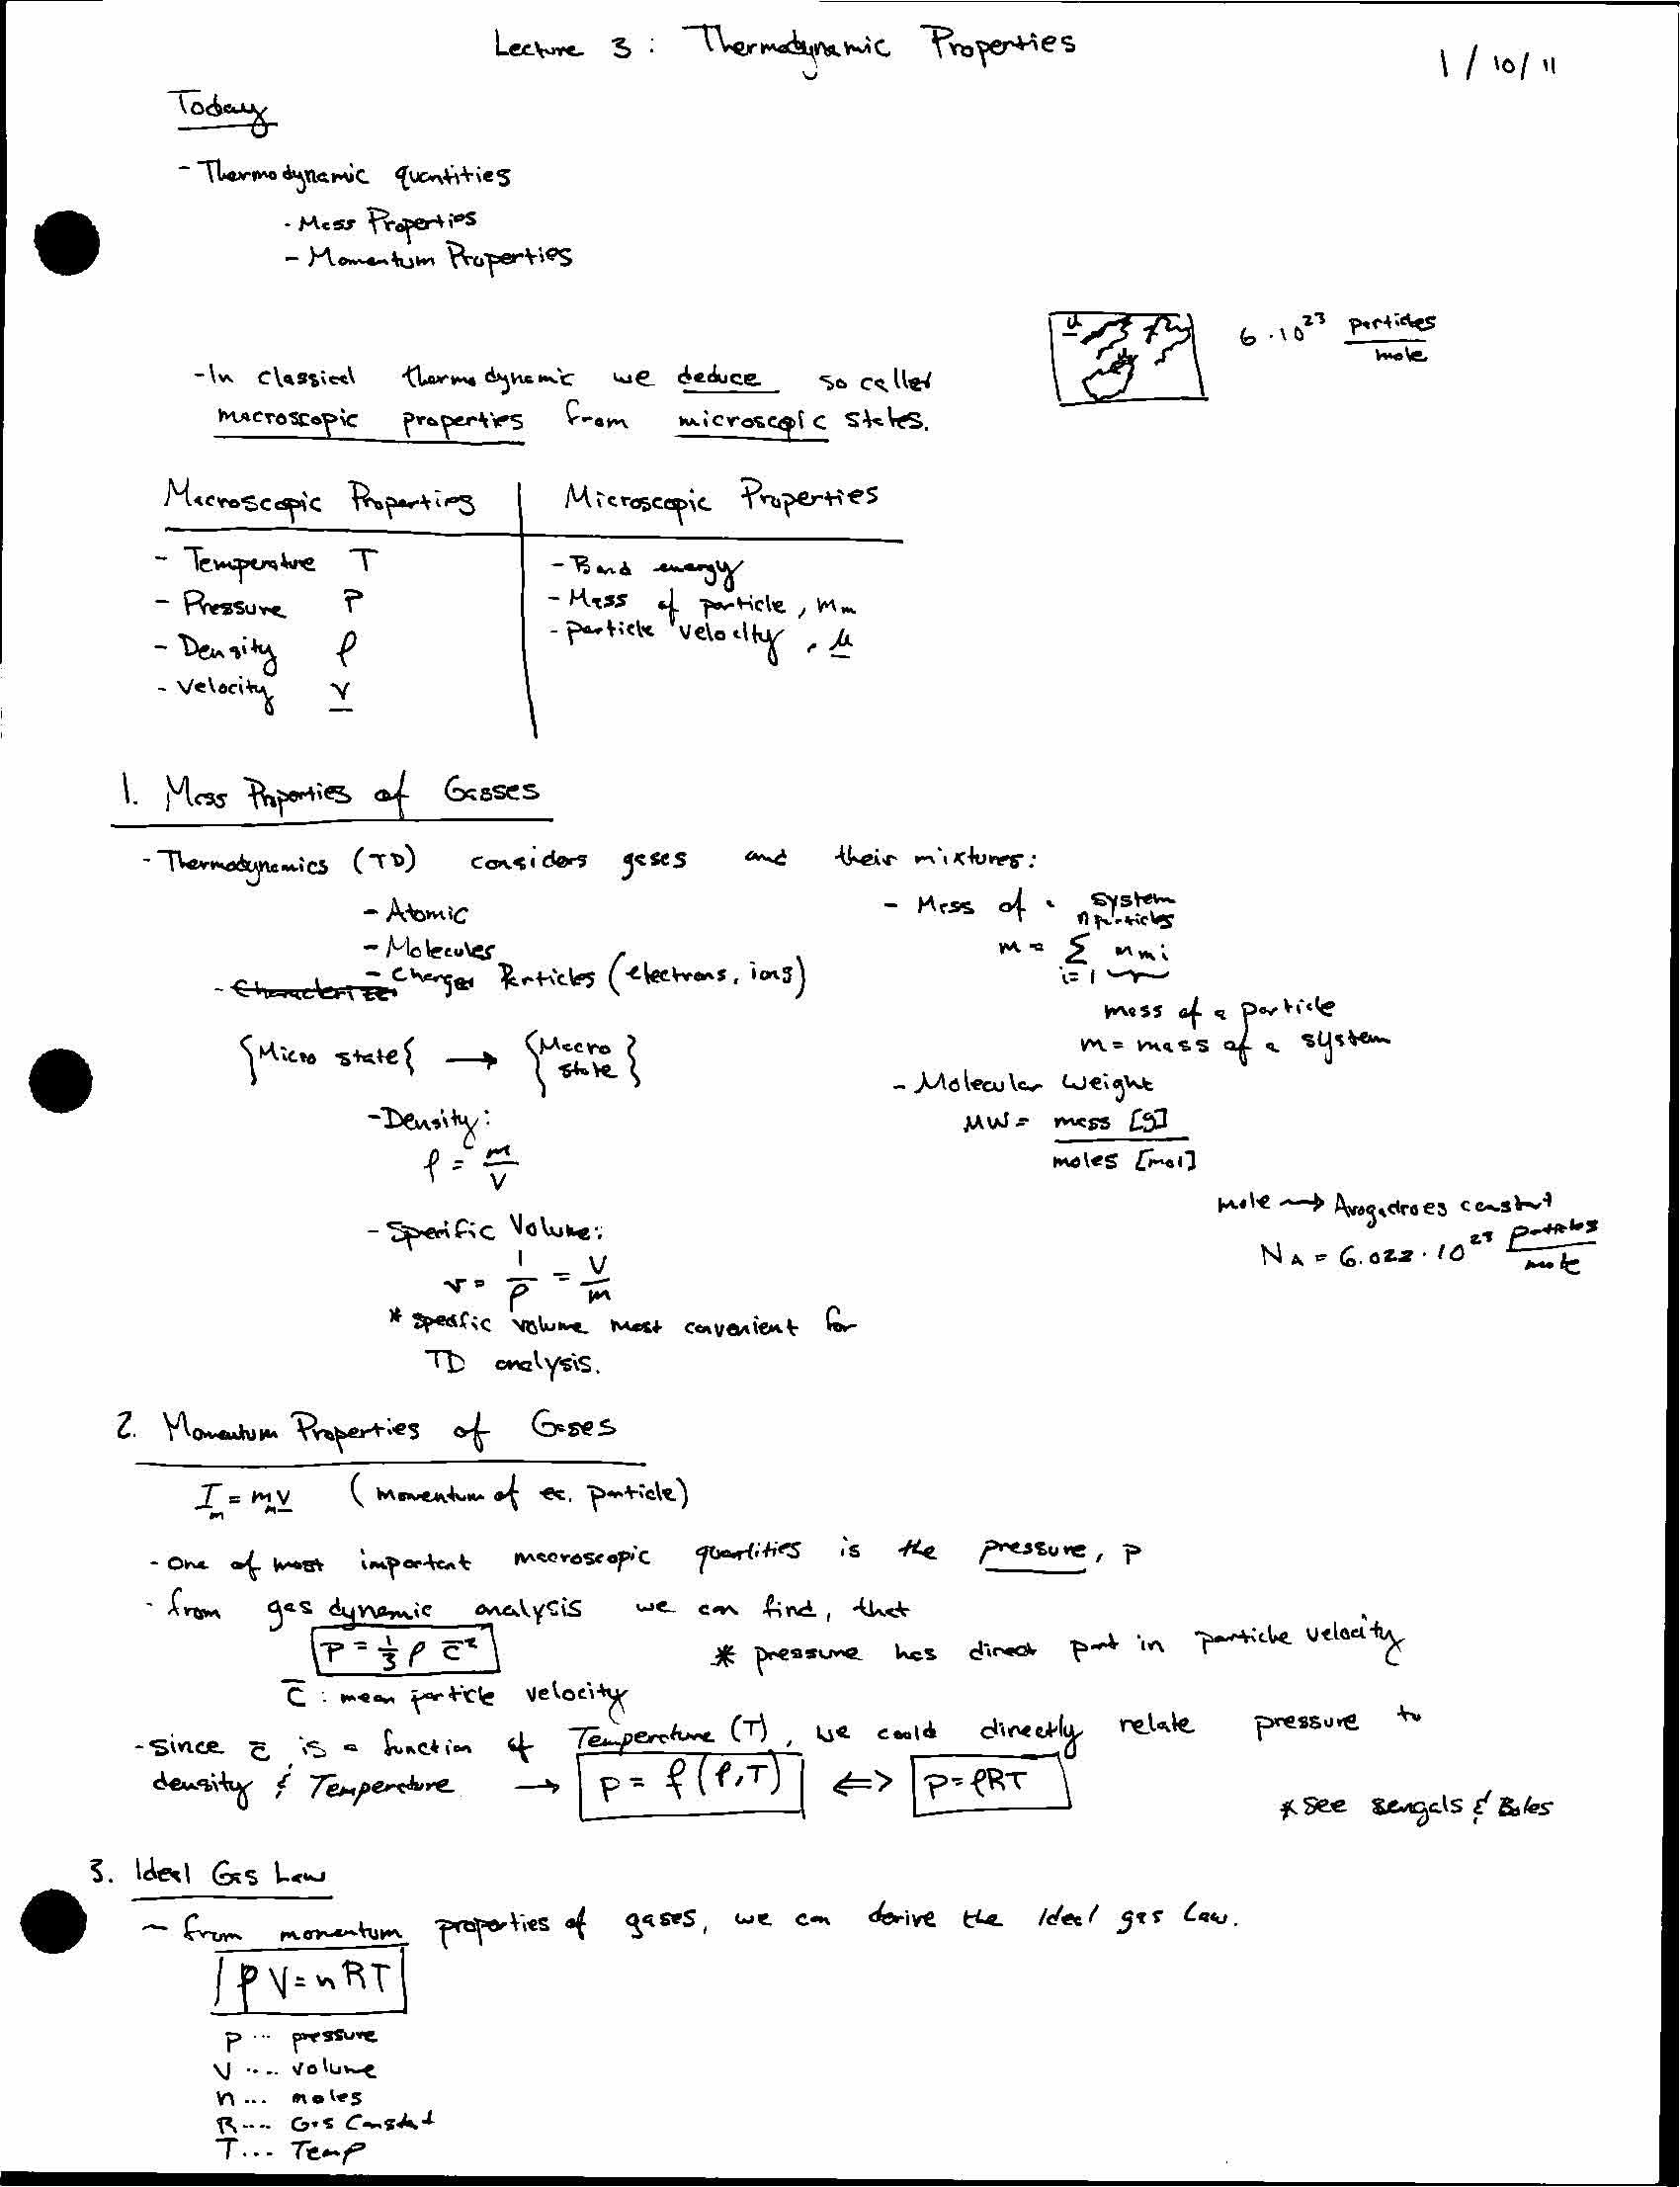 Lecture 3 : Thermodynamic Properties
1 / 10 / 11
Today
- Thermodynamic quantities
- Mass Properties
- Momentum Properties
u
6 · 10^23 particles / mole
- In classical thermodynamic we deduce so called
macroscopic properties from microscopic states.
Macroscopic Properties | Microscopic Properties
- Temperature T
- Pressure P
- Density ρ
- Velocity v
- Bond energy
- Mass of particle, mm
- particle velocity, u
1. Mass Properties of Gasses
- Thermodynamics (TD) considers gases and their mixtures:
- Atomic
- Molecules
- Charged Particles (electrons, ions)
- Characterize
{Micro state} → {Macro state}
- Density:
ρ = m / V
- Specific Volume:
v = 1/ρ = V/m
* specific volume most convenient for
TD analysis.
- Mass of a system
n particles
m = Σ mmi
i=1
mass of a particle
m = mass of a system
- Molecular Weight
MW = mass [g] / moles [mol]
mole → Avogadroes constant
NA = 6.022 · 10^23 particles / mole
2. Momentum Properties of Gases
Im = mm v (momentum of particle)
- One of most important macroscopic quantities is the pressure, p
- from gas dynamic analysis we can find, that
P = 1/3 ρ c̄²
* pressure has direct part in particle velocity
c̄ : mean particle velocity
- since c̄ is a function of Temperature (T), we could directly relate pressure to
density & Temperature → p = f(ρ,T) <=> p = ρRT
* See Sengals & Boles
3. Ideal Gas Law
- from momentum properties of gases, we can derive the Ideal gas Law.
pV = nRT
p ... pressure
V .... volume
n ... moles
R .... Gas Constant
T ... Temp